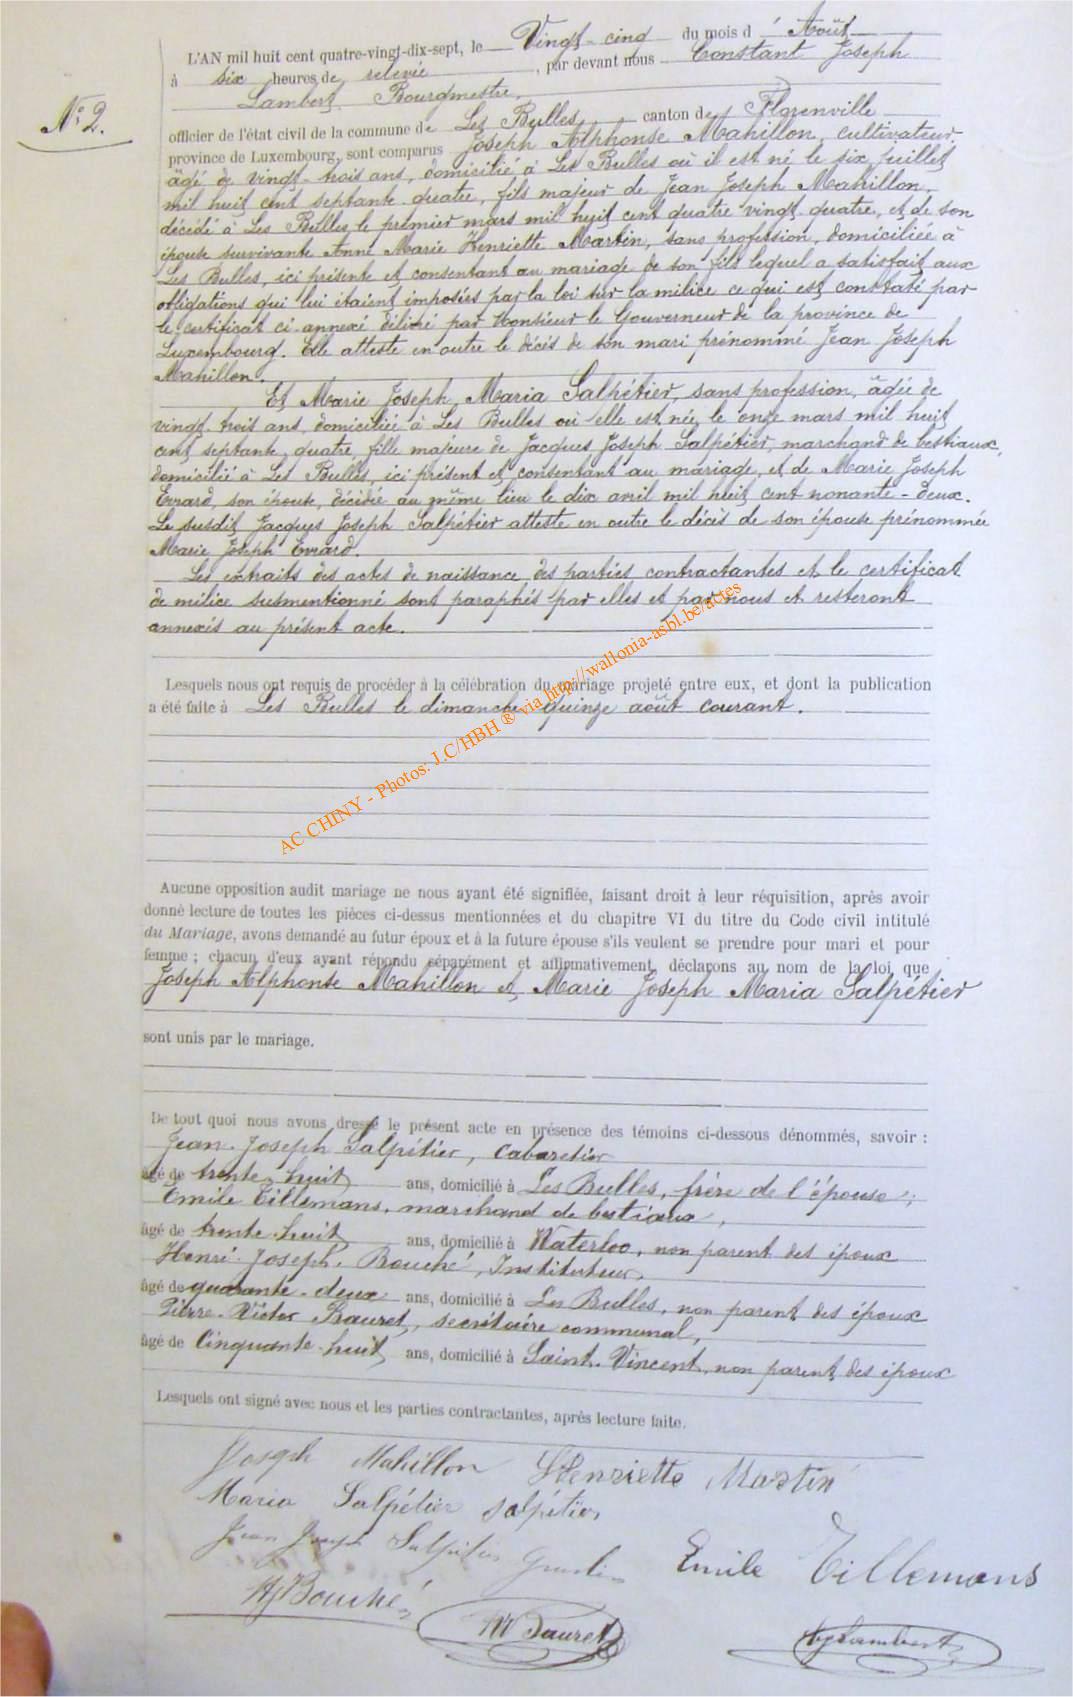 N° 2.
L'AN mil huit cent quatre-vingt-dix-sept, le Vingt-cinq du mois d'Août
à six heures de relevée, par devant nous Constant Joseph
Lambert Bourgmestre,
officier de l'état civil de la commune de Les Bulles canton de Florenville
province de Luxembourg, sont comparus Joseph Alphonse Mahillon, cultivateur,
âgé de vingt-trois ans, domicilié à Les Bulles où il est né le six juillet
mil huit cent septante-quatre, fils majeur de Jean Joseph Mahillon,
décédé à Les Bulles, le premier mars mil huit cent quatre vingt quatre, et de son
épouse survivante Anne Marie Henriette Martin, sans profession, domiciliée à
Les Bulles, ici présente et consentant au mariage de son fils lequel a satisfait aux
obligations qui lui étaient imposées par la loi sur la milice ce qui est constaté par
le certificat ci-annexé délivré par Monsieur le Gouverneur de la province de
Luxembourg. Elle atteste en outre le décès de son mari prénommé Jean Joseph
Mahillon.
Et Marie Joseph Maria Salpétier, sans profession, âgée de
vingt-trois ans, domiciliée à Les Bulles où elle est née le onze mars mil huit
cent septante quatre, fille majeure de Jacques Joseph Salpétier, marchand de bestiaux,
domicilié à Les Bulles, ici présent et consentant au mariage, et de Marie Joseph
Evrard, son épouse, décédée au même lieu le dix avril mil huit cent nonante-deux.
Le susdit Jacques Joseph Salpétier atteste en outre le décès de son épouse prénommée
Marie Joseph Evrard.
Les extraits des actes de naissance des parties contractantes et le certificat
de milice susmentionné sont paraphés par elles et par nous et resteront
annexés au présent acte.
Lesquels nous ont requis de procéder à la célébration du mariage projeté entre eux, et dont la publication
a été faite à Les Bulles le dimanche quinze août courant.
AC CHINY - Photos: J.C/HBH ® via http://wallonia-asbl.be/actes
Aucune opposition audit mariage ne nous ayant été signifiée, faisant droit à leur réquisition, après avoir
donné lecture de toutes les pièces ci-dessus mentionnées et du chapitre VI du titre du Code civil intitulé
du Mariage, avons demandé au futur époux et à la future épouse s'ils veulent se prendre pour mari et pour
femme ; chacun d'eux ayant répondu séparément et affirmativement, déclarons au nom de la loi, que
Joseph Alphonse Mahillon et Marie Joseph Maria Salpétier
sont unis par le mariage.
De tout quoi nous avons dressé le présent acte en présence des témoins ci-dessous dénommés, savoir :
Jean-Joseph Salpétier, cabaretier
âgé de trente-huit ans, domicilié à Les Bulles, frère de l'épouse ;
Emile Tillemans, marchand de bestiaux,
âgé de trente-huit ans, domicilié à Waterloo, non parent des époux
Henri-Joseph Bouché, Instituteur,
âgé de quarante-deux ans, domicilié à Les Bulles, non parent des époux
Pierre-Victor Sauret, secrétaire communal,
âgé de Cinquante-huit ans, domicilié à Saint-Vincent, non parent des époux
Lesquels ont signé avec nous et les parties contractantes, après lecture faite.
Joseph Mahillon Henriette Martin
Maria Salpétier Salpétier
Jean Joseph Salpétier Emile Tillemans
HJ Bouché
Sauret Lambert